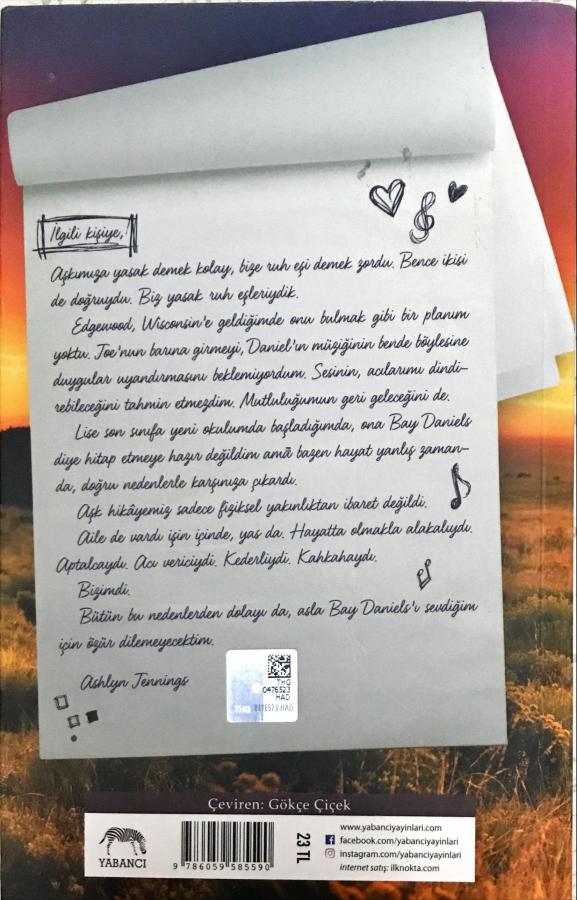 İlgili kişiye,
Aşkımıza yasak demek kolay, bize ruh eşi demek zordu. Bence ikisi
de doğruydu. Biz yasak ruh eşleriydik.
Edgewood, Wisconsin'e geldiğimde onu bulmak gibi bir planım
yoktu. Joe'nun barına girmeyi, Daniel'ın müziğinin bende böylesine
duygular uyandırmasını beklemiyordum. Sesinin, acılarımı dindi-
rebileceğini tahmin etmezdim. Mutluluğumun geri geleceğini de.
Lise son sınıfa yeni okulumda başladığımda, ona Bay Daniels
diye hitap etmeye hazır değildim amā bazen hayat yanlış zaman-
da, doğru nedenlerle karşınıza çıkardı.
Aşk hikâyemiz sadece fiziksel yakınlıktan ibaret değildi.
Aile de vardı işin içinde, yas da. Hayatta olmakla alakalıydı.
Aptalcaydı. Acı vericiydi. Kederliydi. Kahkahaydı.
Bizimdi.
Bütün bu nedenlerden dolayı da, asla Bay Daniels'ı sevdiğim
için özür dilemeyecektim.
Ashlyn Jennings
THG
0476523
HAD
THG 0476523 HAD
Çeviren: Gökçe Çiçek
YABANCI
9 786059 585590
23 TL
www.yabanciyayinlari.com
facebook.com/yabanciyayinlari
instagram.com/yabanciyayinlari
internet satış: ilknokta.com